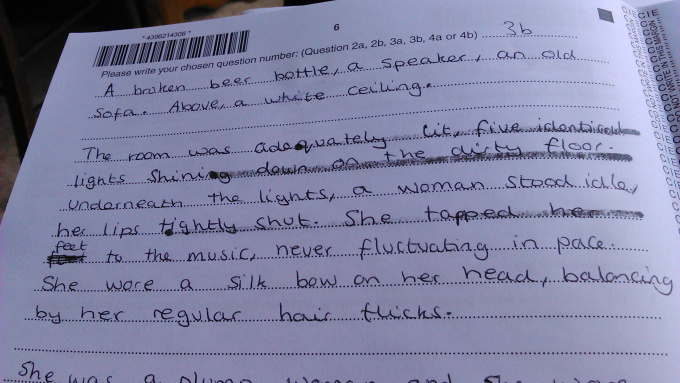 * 4396214306 *
6
Please write your chosen question number: (Question 2a, 2b, 3a, 3b, 4a or 4b) 3b
A broken beer bottle, a speaker, an old
sofa. Above, a white ceiling.
The room was adequately lit, five identical
lights shining down on the dirty floor.
Underneath the lights, a woman stood idle,
her lips tightly shut. She tapped her
feet
to the music, never fluctuating in pace.
She wore a silk bow on her head, balancing
by her regular hair flicks.
She was a plump woman and She